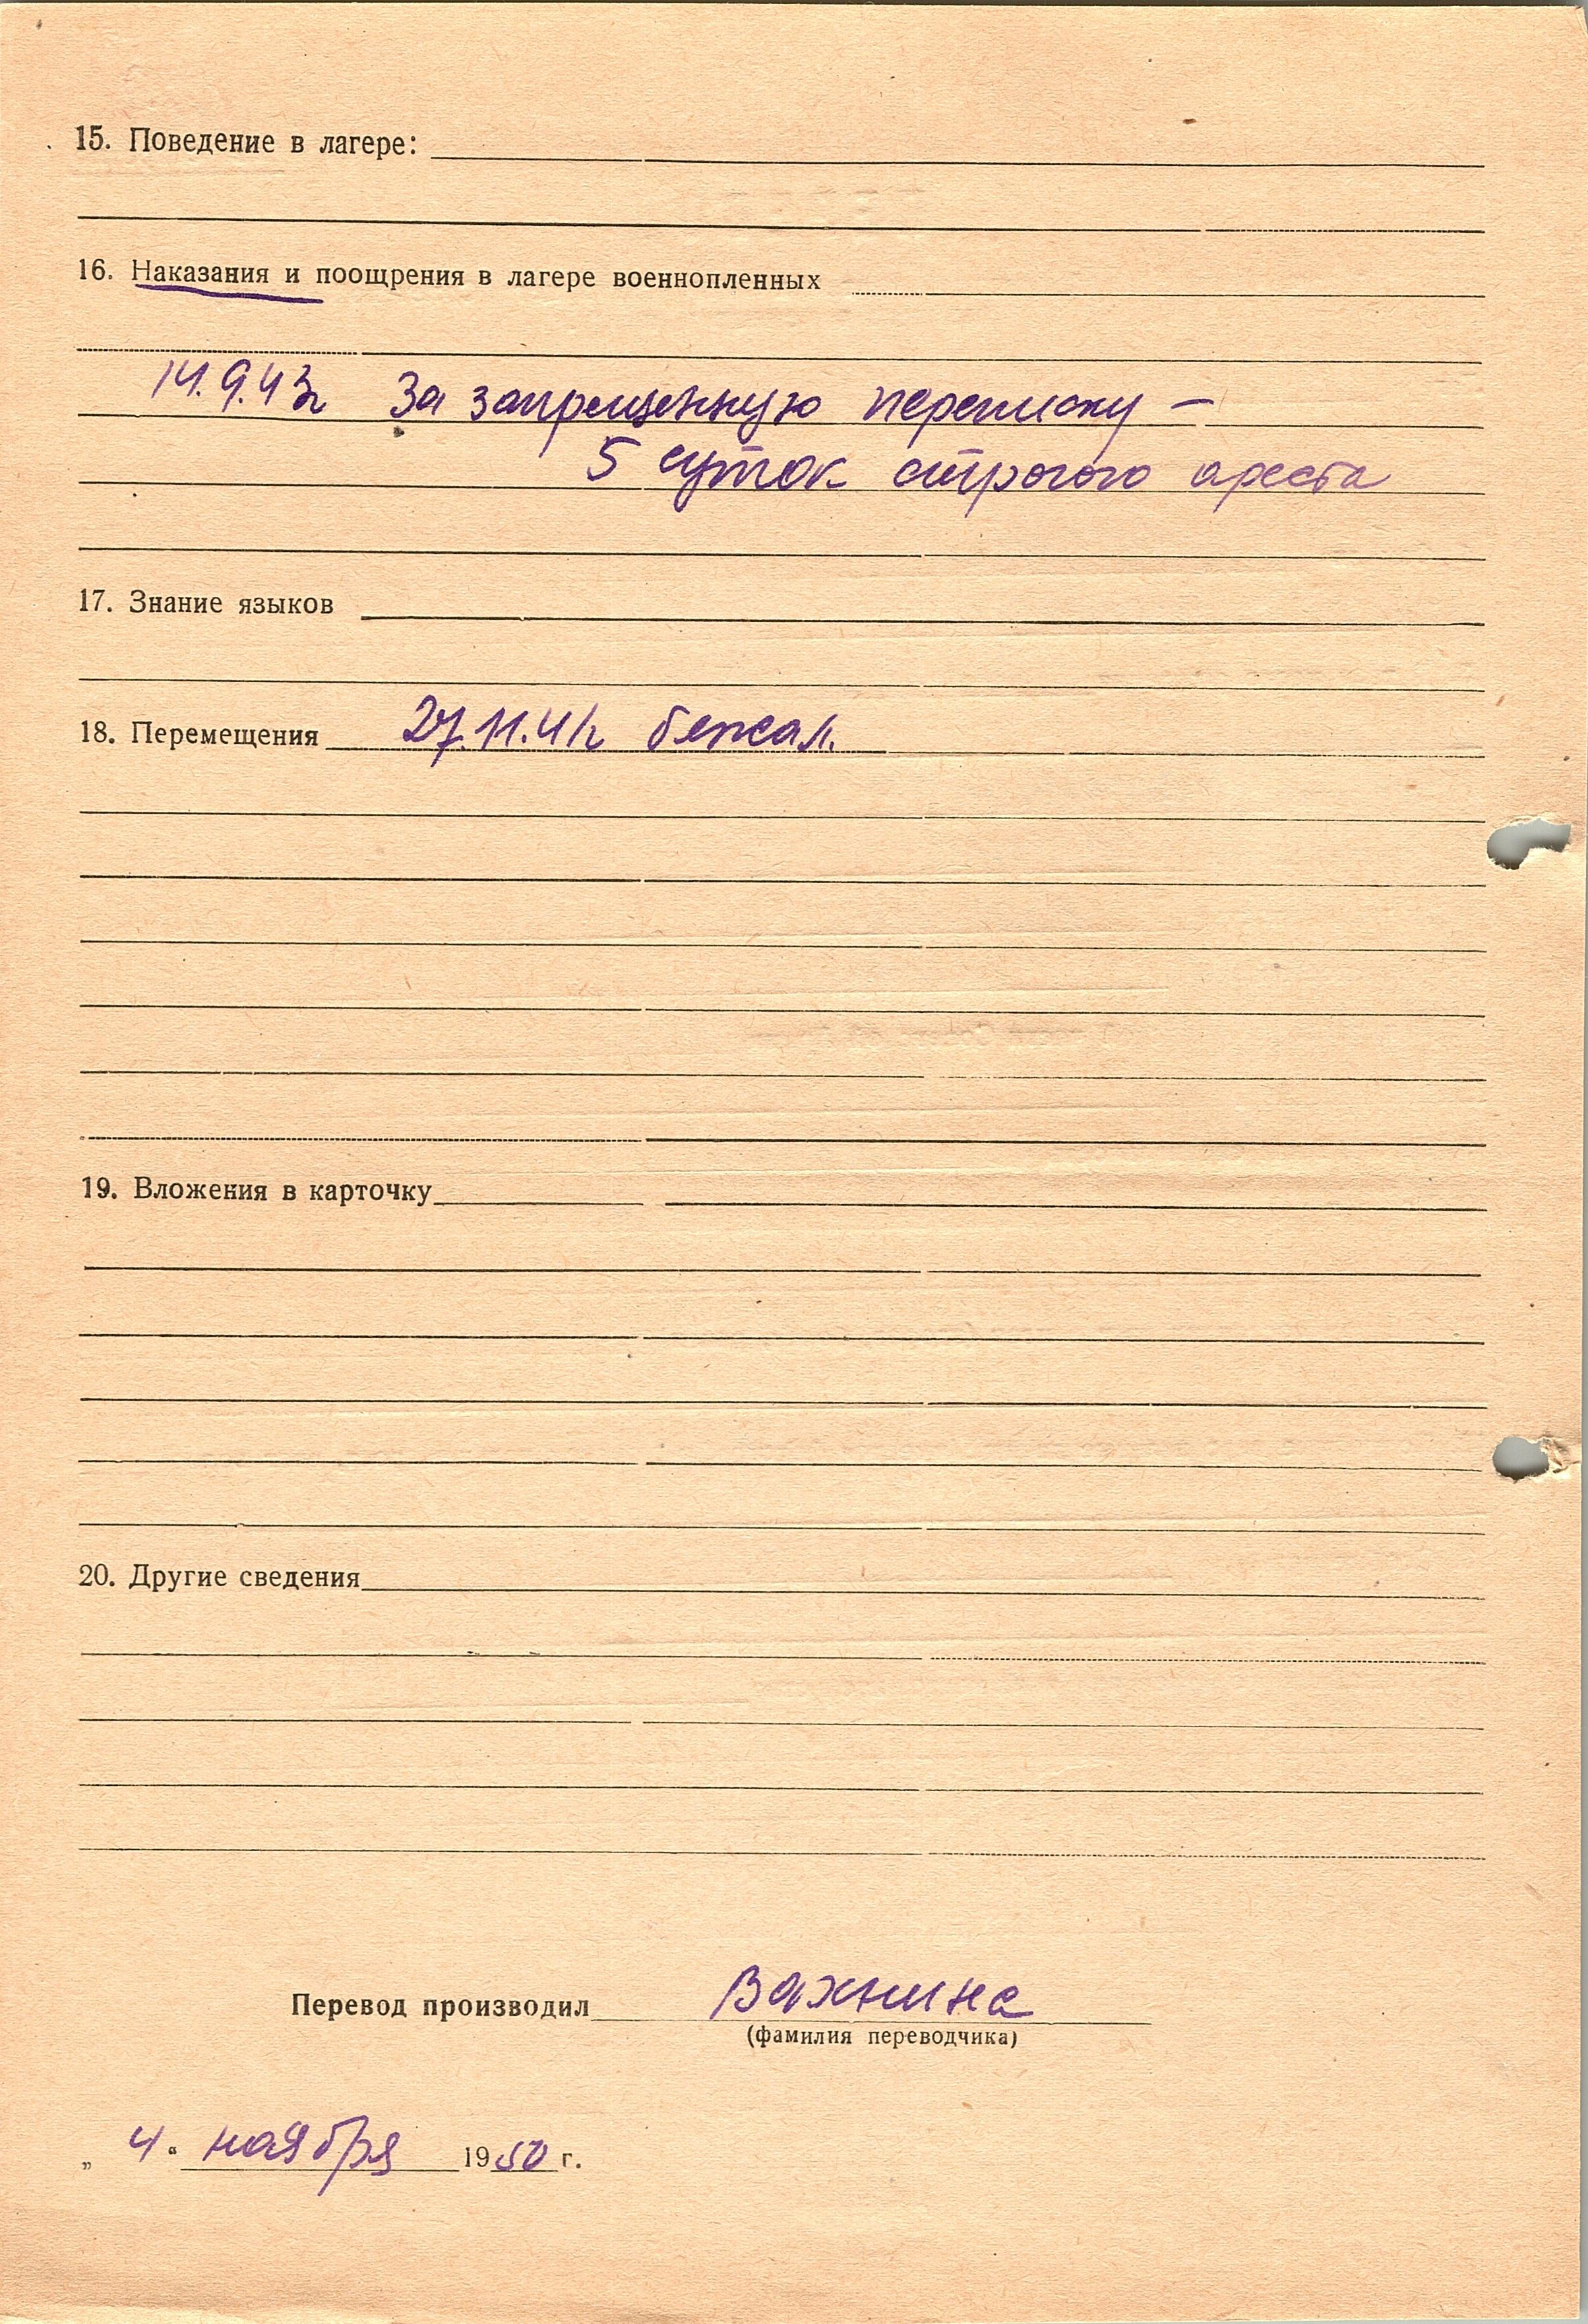 15. Поведение в лагере:
16. Наказания и поощрения в лагере военнопленных
14.9.43г За запрещенную переписку –
5 суток строгого ареста
17. Знание языков
18. Перемещения 27.11.41г бежал.
19. Вложения в карточку
20. Другие сведения
Перевод производил Вахнина
(фамилия переводчика)
„4“ ноября 1950 г.